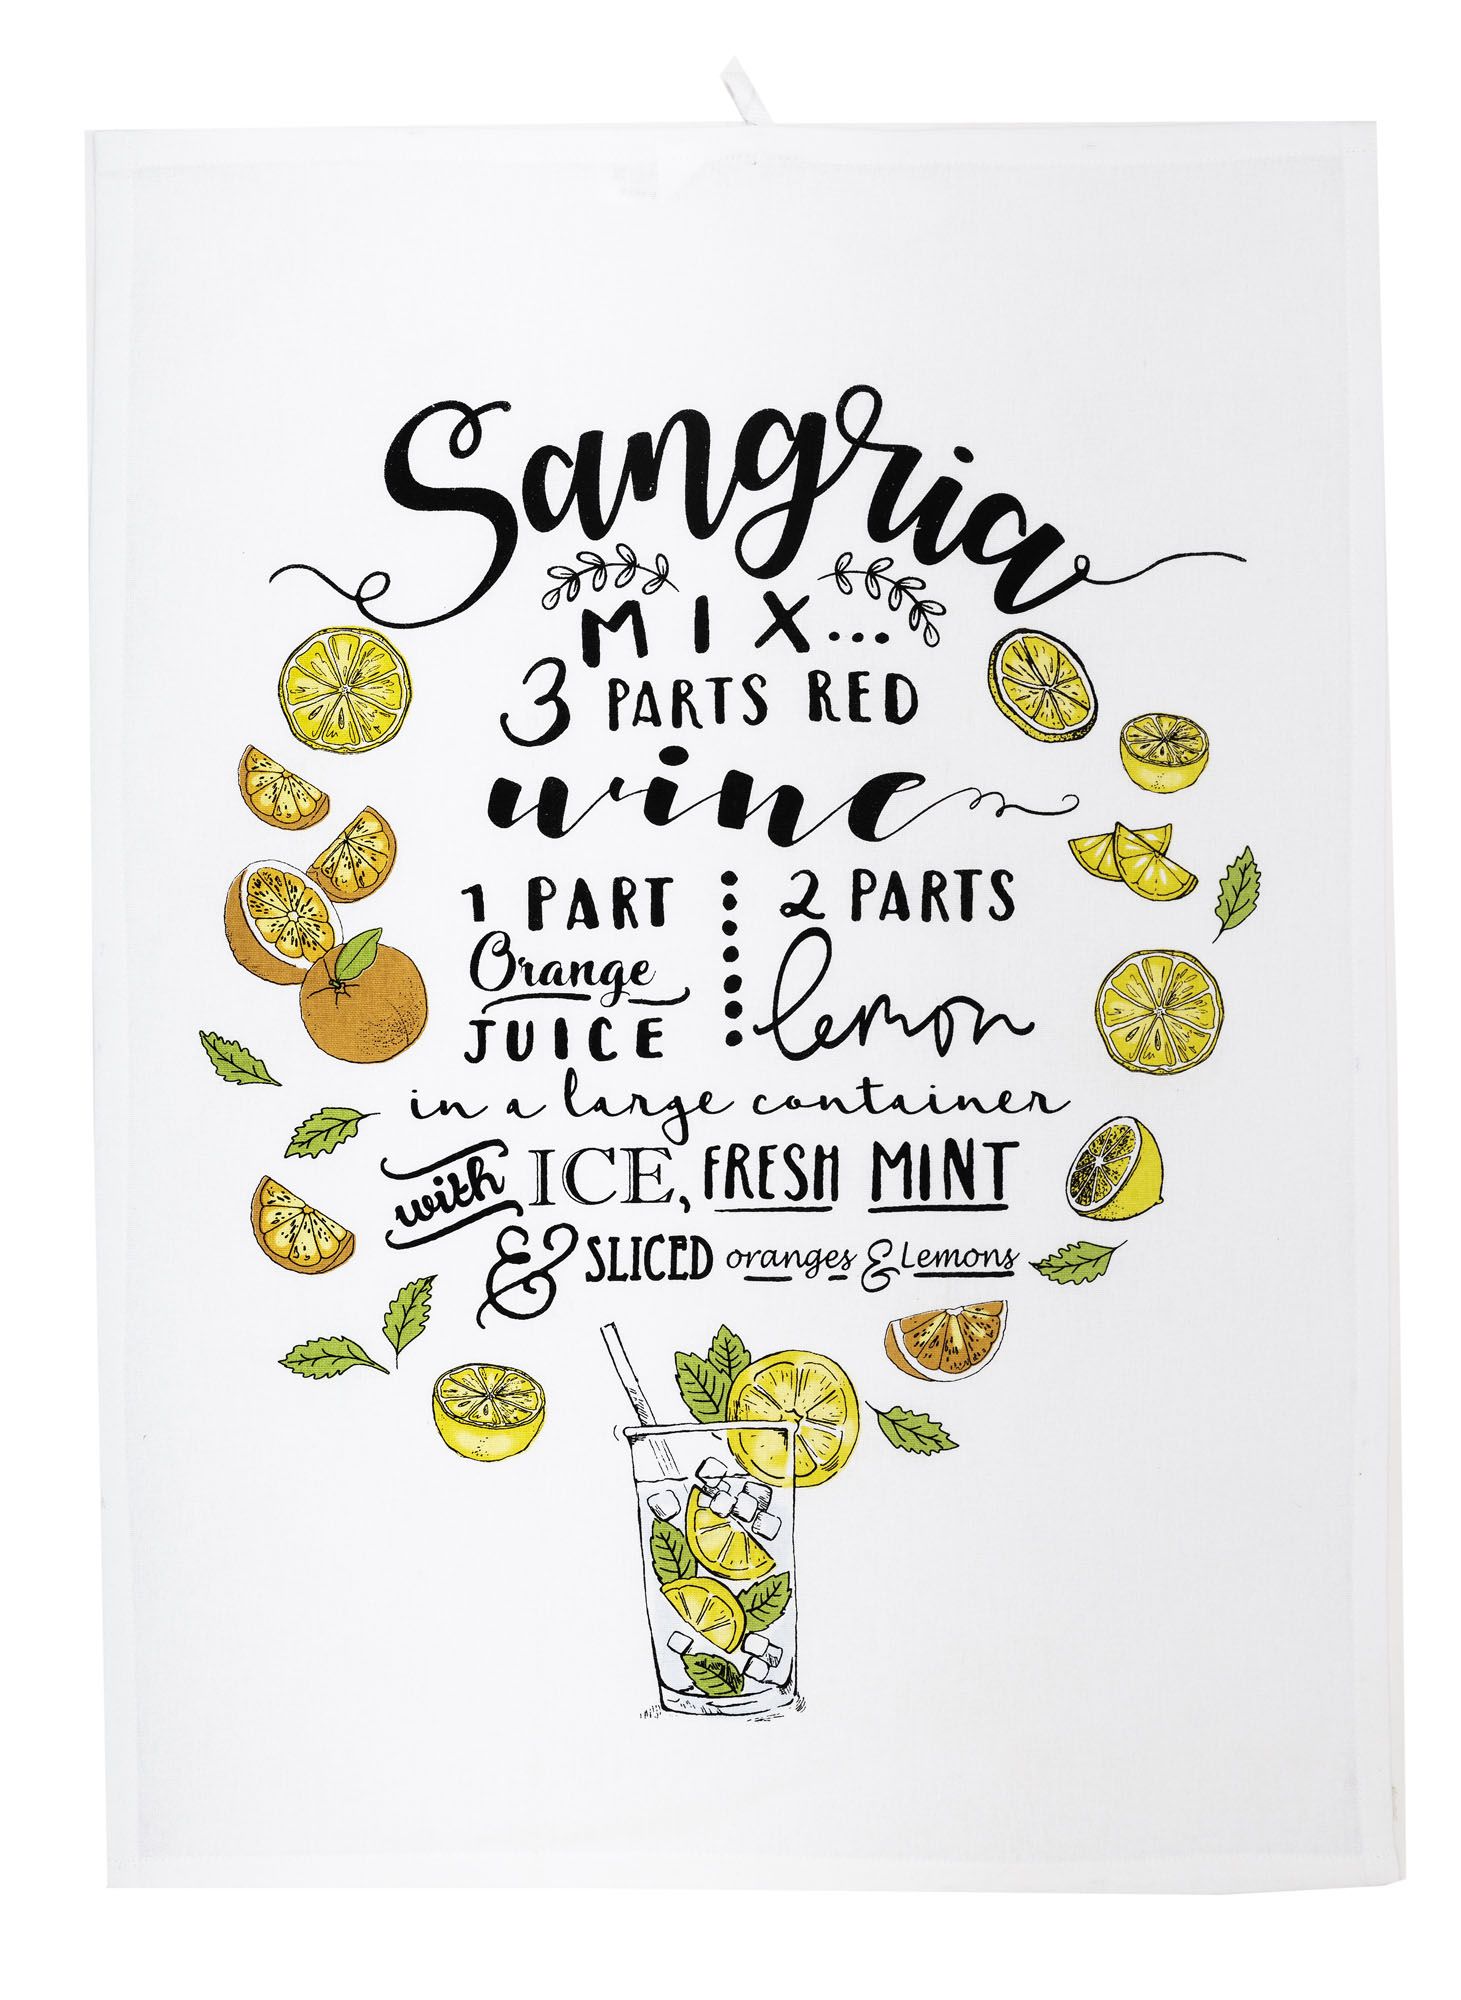 Sangria
MIX...
3 PARTS RED
wine
1 PART
Orange
JUICE
2 PARTS
lemon
in a large container
with ICE, FRESH MINT
& SLICED oranges & Lemons